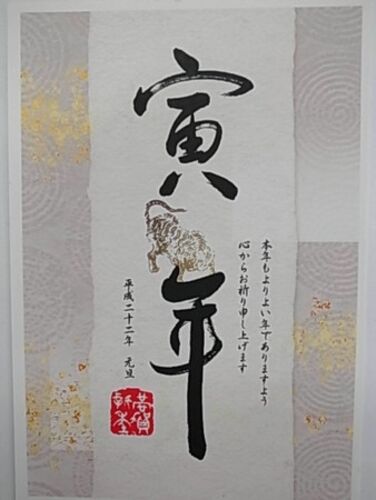 寅年
本年もよりよい年でありますよう
心からお祈り申し上げます
平成二十二年　元旦
恭賀
新年